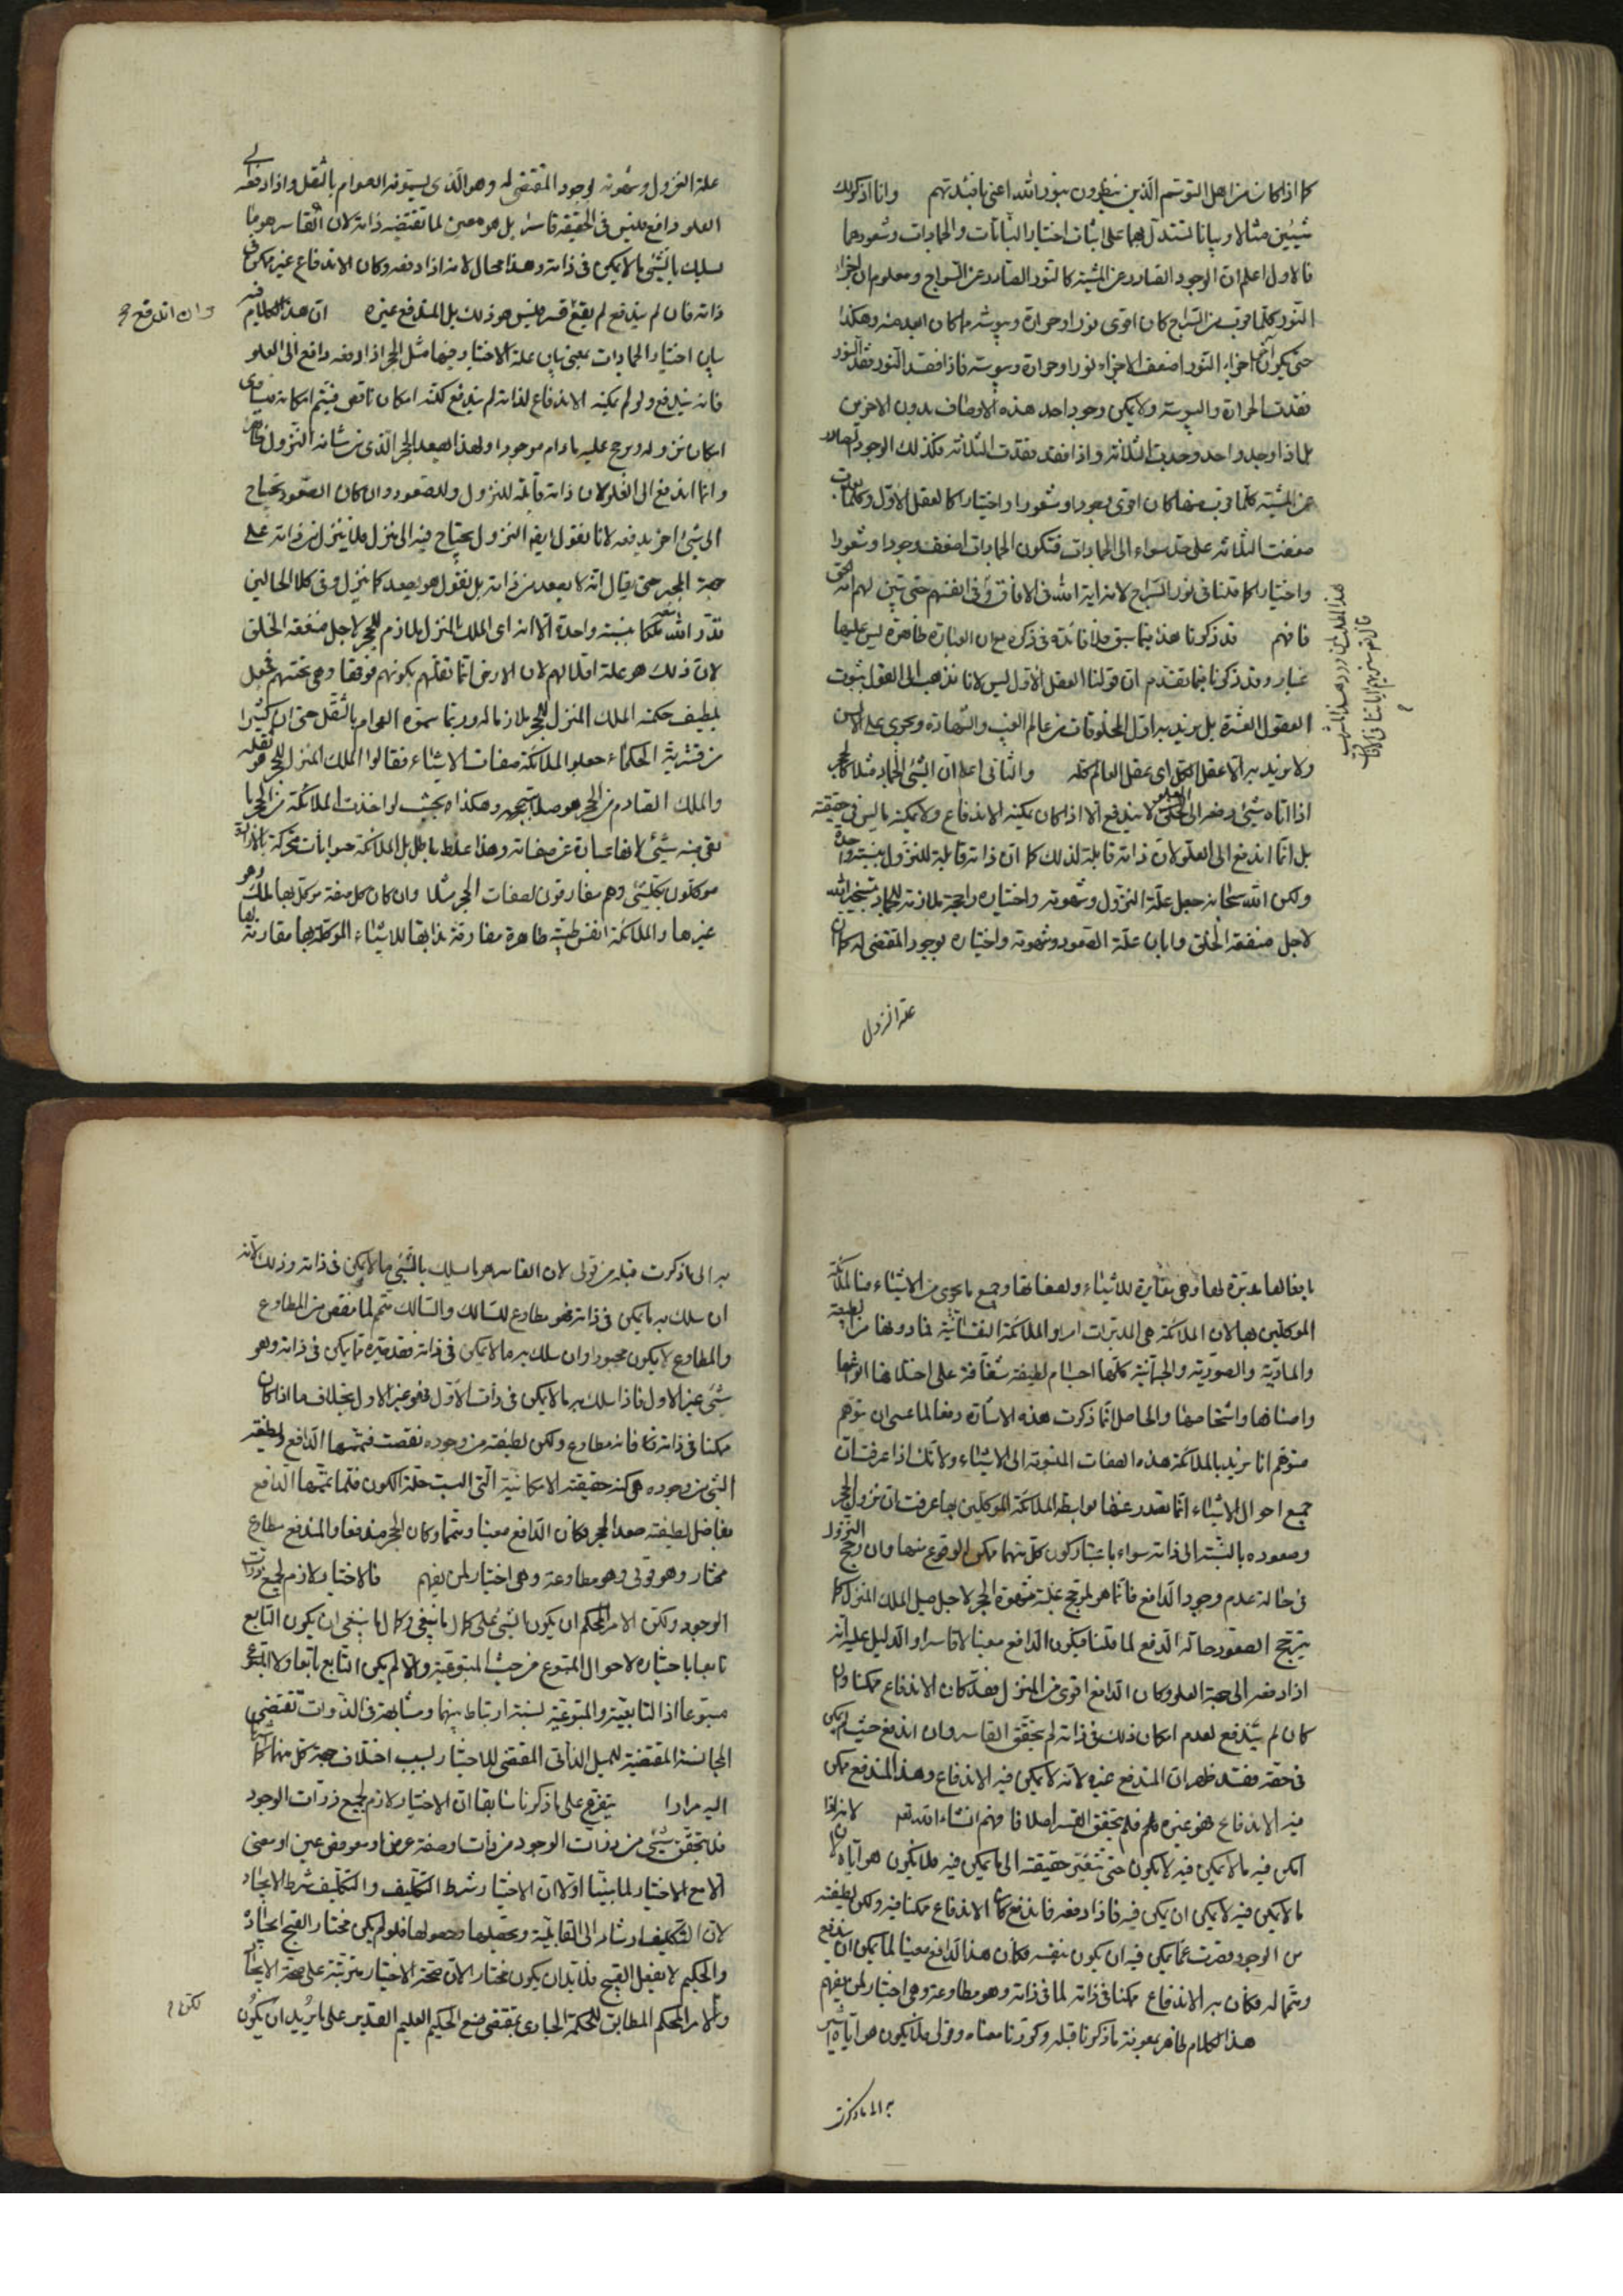 كما اذا كان من اهل التوسّم الّذين ينظرون بنور الله اعنى بافئدتهم وانا اذكر لك
شيئين مثالا وبيانا تستدلّ بهما على اثبات اختيار النباتات والجمادات وشعورهما
فالاول اعلم ان الوجود الصادر عن المشية كالنور الصادر عن السراج ومعلوم ان اجزاء
النّور كلّما قرب من السّراج كان اقوى نورا وحرارة ويبوسة مما كان ابعد منه وهكذا
حتى يكون آخر اجزاء النّور اضعف الاجزاء نورا وحرارة ويبوسة فاذا فقد النور فقد النور
فقدت الحرارة واليبوسة ولا يمكن وجود احد هذه الاوصاف بدون الاخرين
بل اذا وجد واحد وجدت الثلاثة واذا فقد فقدت الثلاثة فكذلك الوجود الصادر
عن المشية كلّما قرب منها كان اقوى وجودا وشعورا واختيارا كالعقل الاوّل وكلما بعدت
ضعفت الثلاثة على حدّ سواء الى الجمادات فتكون الجمادات اضعف وجودا وشعورا
واختيارا كما قلنا فى نور السراج لانه اية الله فى الافاق وفى انفسهم حتى يتبين لهم انه الحق
فافهم قد ذكرنا هذا فيما سبق فلا فائدة فى ذكره مع ان العبارة ظاهرة ليس عليها
غبار وقد ذكرنا فيما تقدّم ان قولنا العقل الاوّل ليس لانا نذهب الى القول بثبوت
العقول العشرة بل نريد به اوّل المخلوقات من عالم الغيب والشهادة ويجرى على الالسن
ولا نريد به الّا عقل الكلّ اى عقل العالم كلّه والثانى اعلم ان الشيئ الجماد مثلا كالحجر
اذا اتاه شيئ ودفعه الى العلو لا يندفع الّا اذا كان يمكنه الاندفاع ولا يمكنه ما ليس فى حقيقته
بل انّما اندفع الى العلوّ لان ذاته قابلة لذلك كما ان ذاته قابلة للنّزول بنسبة واحدة
ولكن الله سبحانه جعل علّة النزول وشهوته واختياره راجحة ملازمة للجماد بتسخير الله
لاجل منفعة الخلق وابان علّة الصّعود وشهوته واختياره بوجود المقتضى له كما ان
علة النزول
علة النزول وشهوته لوجود المقتضى له وهو الّذى يسمّونه العوام بالثّقل واذا دفعه الى
العلو دافع فليس فى الحقيقة قاسرا بل هو معين لما تقتضيه ذاته لان القاسر هو ما
يسلك بالشّيئ ما لا يمكن فى ذاته وهذا محال لانه اذا دفعه وكان الاندفاع غير ممكن فى
ذاته فان لم يندفع لم يقع قسر فليس هو ذلك بل المندفع غيره ان هذا الكلام فيه
وان اندفع
بيان اختيار الجمادات بمعنى بيان علة الاختيار فيها مثل الحجر اذا دفعه دافع الى العلو
فانه يندفع ولو لم يمكنه الاندفاع لذاته لم يندفع لكنه امكان ناقص فيتمّ امكانه فيساوى
امكان نزوله ويرجح عليه مادام موجودا ولهذا يصعد الحجر الّذى من شانه النّزول ظاهرا
وانما اندفع الى العلو لان ذاته قابلة للنزول وللصعود وان كان الصّعود يحتاج
الى شيئ اخر يدفعه لانا نقول ايضا النزول يحتاج فيه الى منزل فلا ينزل من ذاته على
جهة المجد حتى يقال انّه لا يصعد من ذاته بل نقول هو يصعد كما ينزل وفى كلا الحالين
بنسبة واحدة الّا انه اى الملك المنزل ملازم للحجر لاجل منفعة الخلق
لان ذلك هو علة اقلالهم لان الارض انّما تقلّهم بكونهم فوقها وهى تحتهم فجعل
بلطيف حكمته الملك المنزل للحجر ملازما له وربما سمّوه العوام بالثّقل حتى ان كثيرا
من الحكماء جعلوا الملائكة صفات الاشياء فقالوا الملك المنزل للحجر هو ثقله
والملك القادم من الحجر هو صلابته وهكذا بحيث لو اخذت الملائكة من الحجر ما
بقى منه شيئ لانها عبارة عن صفاته وهذا غلط باطل بل الملائكة حيوانات متحركة بالارادة
موكلون بكلّ شيئ وهم مفارقون لصفات الحجر مثلا وان كان كل صفة موكل بها ملك وهو
غيرها والملائكة انفس طيبة طاهرة مفارقة بذاتها للاشياء الموكلة بها مقارنة لها
بافعالها مدبّرة لها وهى مغايرة للاشياء ولصفاتها وجميع ما يجرى من الاشياء من الملائكة
الموكلين بها لان الملائكة هى المدبرات امرا والملائكة النفسانية فما دونها من الطبيعية
والمادّية والصّورية والجسمانية كلّها اجسام لطيفة شفّافة على اختلاف انواعها
واصنافها واشخاصها والحاصل انّما ذكرت هذه الاشارة دفعا لما عسى ان يتوهّم
متوهّم انا نريد بالملائكة هذه الصفات المنسوبة الى الاشياء ولانّك اذا عرفت ان
جميع احوال الاشياء انّما تصدر عنها بواسطة الملائكة الموكلين بها عرفت ان نزول الحجر
وصعوده بالنّسبة الى ذاته سواء باعتبار كون كلّ منهما ممكن الوقوع منها وان رجح النزول
فى حالة عدم وجود الدافع فانّما هو لمرجّح غلبة شهوة الحجر لاجل ميل الملك المنزل كما
يترجّح الصّعود حالة الدّفع لما قلنا فيكون الدّافع معينا لا قاسرا والدّليل عليه انّه
اذا دفعه الى جهة العلو وكان الدّافع اقوى من المنزل فقد كان الاندفاع ممكنا وان
كان لم يندفع لعدم امكان ذلك فى ذاته لم يتحقّق القاسر وان اندفع حيث لم يمكن
فى حقه فقد ظهر ان المندفع غيره لانّه لا يمكن فيه الاندفاع وهذا المندفع ممكن
فيه الاندفاع فهو غيره فلم يتحقق القسر اصلا فافهم انشاء الله تعالى لانه اذا
امكن فيه ما لا يمكن فيه لا يكون حتى تتغيّر حقيقته الى ما يمكن فيه فلا يكون هو ايّاه لان
ما لا يمكن فيه لا يمكن ان يمكن فيه فاذا دفعه فاندفع كان الاندفاع ممكنا فيه ولكن لطيفته
من الوجود قصرت عمّا يمكن فيه ان يكون بنفسه فكان هذا الدّافع معينا لما يمكن ان يندفع
ومتمّا له فكان به الاندفاع ممكنا فى ذاته لما فى ذاته وهو مطاوعة وهى اختيار لمن يفهم
هذا الكلام ظاهر بمعونة ما ذكرنا قبله وكررنا معناه وقولى فلا يكون هو ايّاه اشير
به الى ما ذكرت
به الى ما ذكرت قبله من قولى لان القاسر هو ما سلك بالشّيئ ما لا يمكن فى ذاته وذلك لانّه
ان سلك به ما يمكن فى ذاته فهو مطاوع للسّالك والسّالك متمّ لما نقص من المطاوع
والمطاوع لا يكون مجبورا وان سلك به ما لا يمكن فى ذاته فقد غيّره عمّا يمكن فى ذاته وهو
شيئ غير الاول فاذا سلك به ما لا يمكن فى ذات الاوّل فهو غير الاول بخلاف ما اذا كان
ممكنا فى ذاته فانه مطاوع ولكن لطيفته من وجوده نقصت فتمّمها الدّافع ولطيفة
الشّيئ من وجوده هى كنه حقيقته الامكانيّة الّتى البست حلّة الكون فلمّا تمّمها الدّافع
بفاضل لطيفته صعد الحجر فكان الدّافع معينا ومتمّا وكان الحجر مندفعا والمندفع مطاوع
مختار وهو قولى وهو مطاوعة وهى اختيار لمن يفهم فالاختيار لازم لجميع ذرّات
الوجود ولكن الامر المحكم ان يكون الشّيئ على كمال ما ينبغى وكمال ما ينبغى ان يكون التّابع
تابعا باختياره لاحوال المتبوع من حيث المتبوعيّة والّا لم يكن التّابع تابعا ولا المتبوع
متبوعا اذ التابعيّة والمتبوعيّة نسبة ارتباط بينهما ومشابهة فى الذّوات تقتضى
المجانسة المقتضية للميل الذّاتى المقتضى للاختيار لسبب اختلاف جهة كل منهما
اليه مرارا يتفرّع على ما ذكرنا سابقا ان الاختيار لازم لجميع ذرّات الوجود
فلا يتحقّق شيئ من ذرات الوجود من ذات او صفة عرض او معروض عين او معنى
الّا مع الاختيار لما بيّنّا اوّلا ان الاختيار شرط التّكليف والتّكليف شرط الايجاد
لانّ التّكليف ارشاد الى القابليّة وتحصيلها وحصولها فلو لم يكن مختارا لقبح ايجاده
والحكيم لا يفعل القبيح فلا بدّ ان يكون مختارا لان صحّة الاختيار مترتّبة على صحّة الايجاد
والامر المحكم المطابق للحكمة الجارى بمقتضى صنع الحكيم العليم القدير على ما يريد ان يكون
لكن